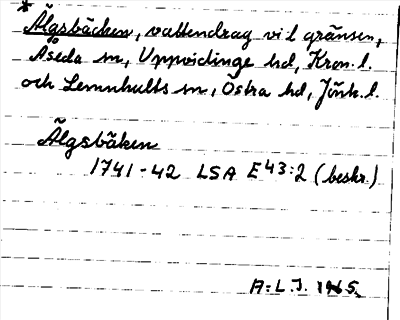 * Älgsbäcken, vattendrag vi l gränsen,
Åseda sn, Uppvidinge hd, Kron. l.
och Lemnhults sn, Östra hd, Jönk. l.
Älgsbäken
1741-42 LSA E43:2 (beskr.)
A.L.J. 1965.